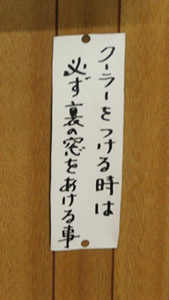 クーラーをつける時は
必ず裏の窓をあける事